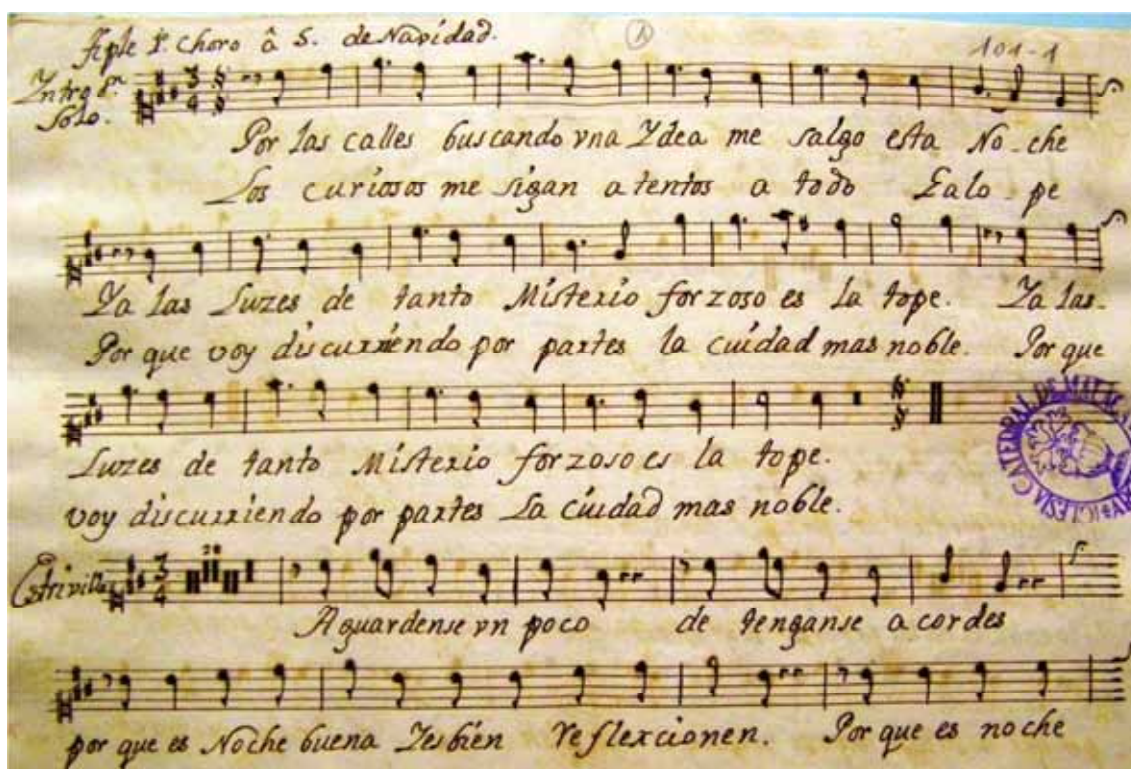 Tiple 1º Choro â 5. de Navidad.
101-1
Yntroon
Solo.
3/4
Por las calles buscando vna Ydea me salgo esta No-che
Los curiosos me sigan atentos a todo Galo-pe
Ya las Luzes de tanto Misterio forzoso es la tope. Ya las-
Por que voy discurriendo por partes la cuidad mas noble. Por que
Luzes de tanto Misterio forzoso es la tope.
voy discurriendo por partes La cuidad mas noble.
Estrivillo
3/4
20
Aguardense vn poco de tenganse acordes
por que es Noche buena Yesbien Reflexcionen. Por que es noche
IGLESIA CATEDRAL DE MALAGA